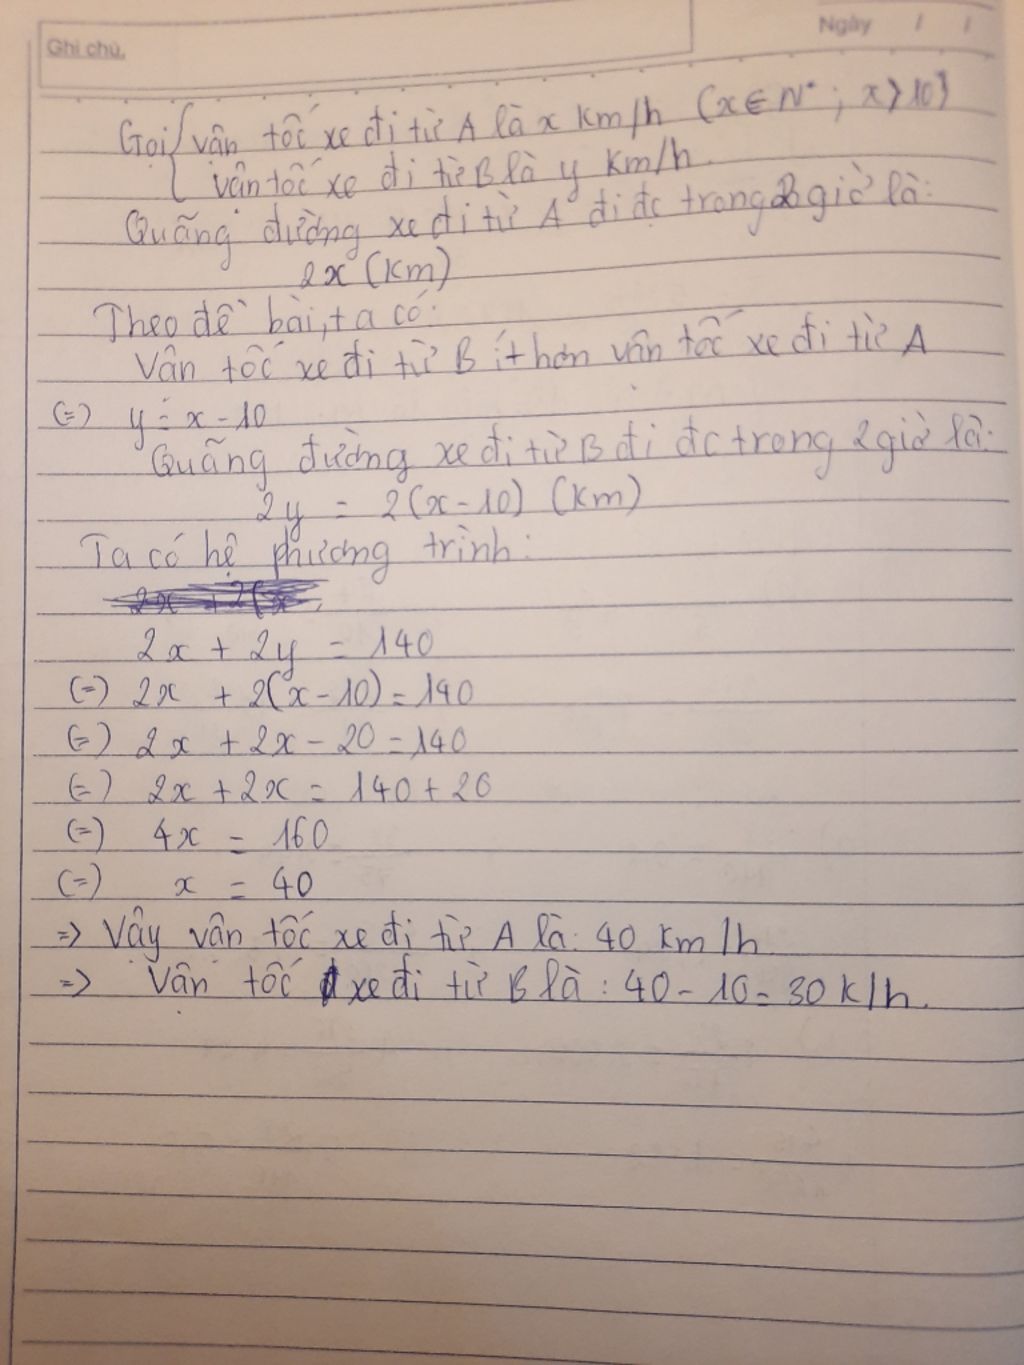 Ghi chú.
Ngày / /
Gọi { vận tốc xe đi từ A là x Km/h (x ∈ N*; x > 10)
vận tốc xe đi từ B là y Km/h.
Quãng đường xe đi từ A đi đc trong 2 giờ là:
2x (Km)
Theo đề bài, ta có:
Vận tốc xe đi từ B ít hơn vận tốc xe đi từ A
(=) y = x - 10
Quãng đường xe đi từ B đi đc trong 2 giờ là:
2y = 2(x - 10) (Km)
Ta có hệ phương trình:
2x + 2y = 140
(=) 2x + 2(x - 10) = 140
(=) 2x + 2x - 20 = 140
(=) 2x + 2x = 140 + 20
(=) 4x = 160
(=) x = 40
=> Vậy vận tốc xe đi từ A là: 40 Km/h
=> Vận tốc xe đi từ B là: 40 - 10 = 30 K/h.